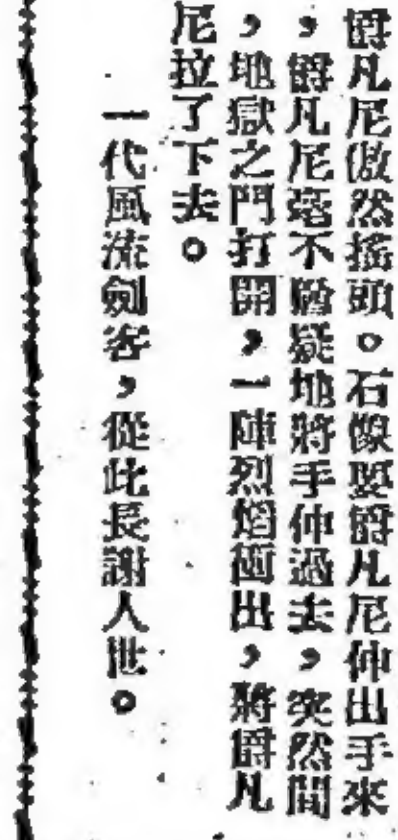 爵凡尼傲然搖頭。石像要爵凡尼伸出手來
，爵凡尼毫不猶疑地將手伸過去，突然間
，地獄之門打開，一陣烈焰衝出，將爵凡
尼拉了下去。
一代風流劍客，從此長謝人世。